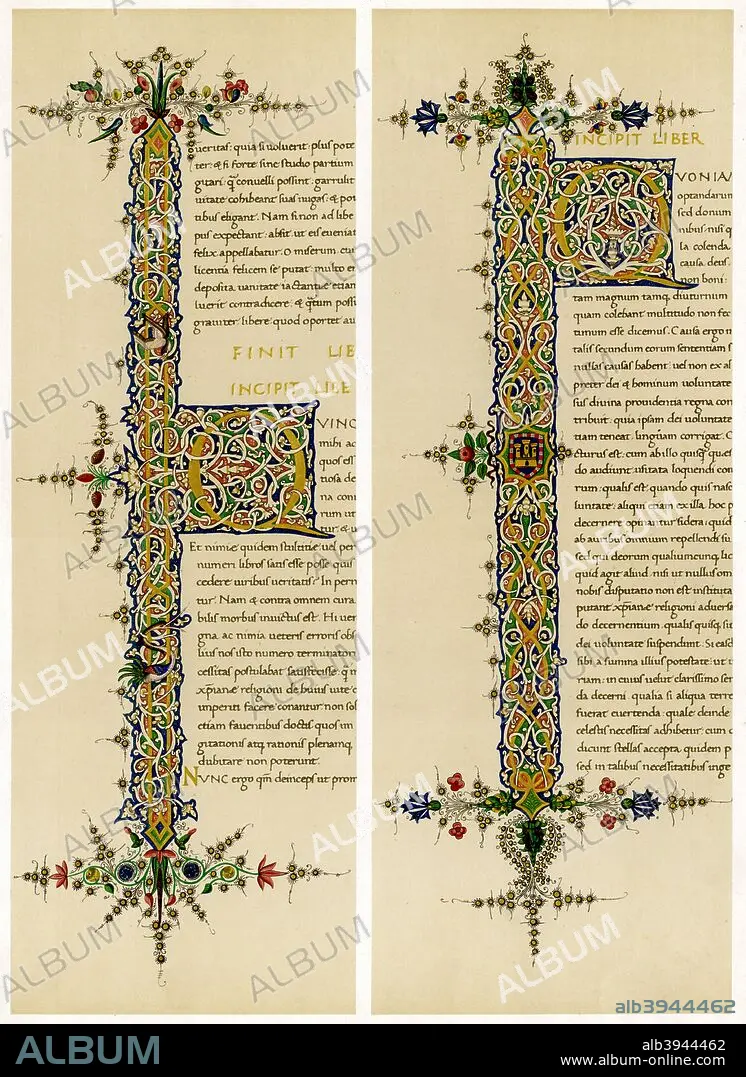 ueritas: quia si uoluerit: plus pote
ter: & si forte sine studio partium
gitari: q̄ conuelli possint: garrulit
uitate cohibeant suas nugas: & pot
tibus eligant. Nam si non ad libe
pus expectant: absit ut eis eueniat
felix appellabatur. O miserum cui
licentia felicem se putat: multo er
deposita uanitate iactantiae etiam
luerit contradicere: & q̄tum possi
grauiter libere quod oportet au
FINIT LIB
INCIPIT LIBE
QVINC
mihi ac
quos ess
tiosa de
na con
rum ut
tur: & u
Et nimiae quidem stultitiae uel per
numeri libros satis esse posse quis
cedere uiribus ueritatis: In pern
tur. Nam & contra omnem cura
bilis morbus inuictus est. Hi uer
gna: ac nimia ueteris erroris obs
lius nos isto numero terminator
cessitas postulabat satisfecisse: q̄ n
xp̄ianae religioni de huius uitae c
imperiti facere conantur non sol
etiam fauentibus doctis quos in
gitationis atq; rationis plenamq;
dubitare non poterunt.
NVNC ergo q̄m deinceps ut prom
INCIPIT LIBER
QVONIAM
optandarum
sed donum
nibus nisi q
la colenda
causa deus.
non boni:
tam magnum tamq; diuturnum
quam colebant multitudo non fec
timum esse dicemus. Causa ergo n
talis secundum eorum sententiam s
nullas causas habent: uel non ex al
preter dei & hominum uoluntate
sus diuina prouidentia regna con
tribuit: quia ipsam dei uoluntate
tiam teneat: linguam corrigat. C
cturus est: cum ab illo quisq; quae
do audiunt: usitata loquendi con
rum: qualis est: quando quis nasc
luntate: aliqui etiam ex illa: hoc p
decernere opinantur sidera: quid
ab auribus omnium repellendi su
sed qui deorum qualiumcunq; lic
quid agit aliud: nisi ut nullus om
nobis disputatio non est instituta
putant: xp̄ianae religioni aduersa
do decernentium: qualis quisq; sit
dei uoluntate suspendunt: Si eas
sibi a summa illius potestate: ut i
riam: in cuius uelut clarissimo sen
da decerni: qualia si aliqua terre
fuerat euertenda: quale deinde
celestis necessitas adhibetur: cum d
dicunt stellas accepta quidem p
sed in talibus necessitatibus inge
ALBUM
alb3944462
ALBUM
alb3944462
www.album-online.com